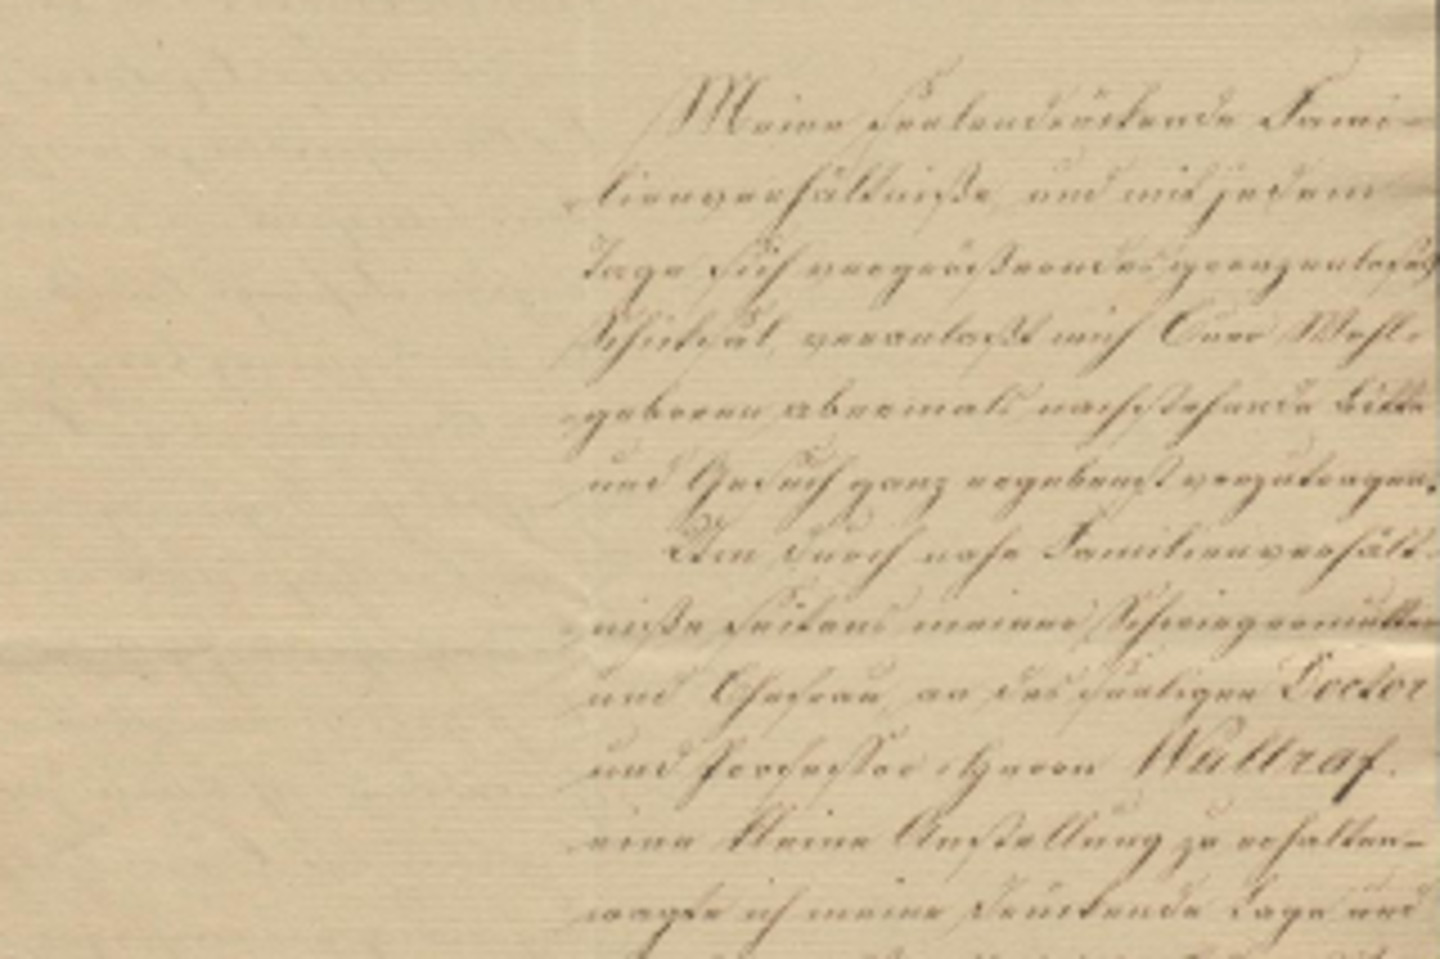 Meine seelendrückende Fami-
lienverhältniße, und mit jedem
Tage sich vergrößerndes grenzenloses
Schicksal, veranlaßt mich Euer Wohl-
geboren abermals nachstehende Bitte
und Gesuch ganz ergebenst vorzutragen.
Um durch nahe Familienverhält-
niße seitens meiner Schwiegermutter
und Ehefrau, an des seeligen Doctor
und Professor Herrn Wallraf.
eine kleine Anstellung zu erhalten-
wagte ich meine drückende Lage und